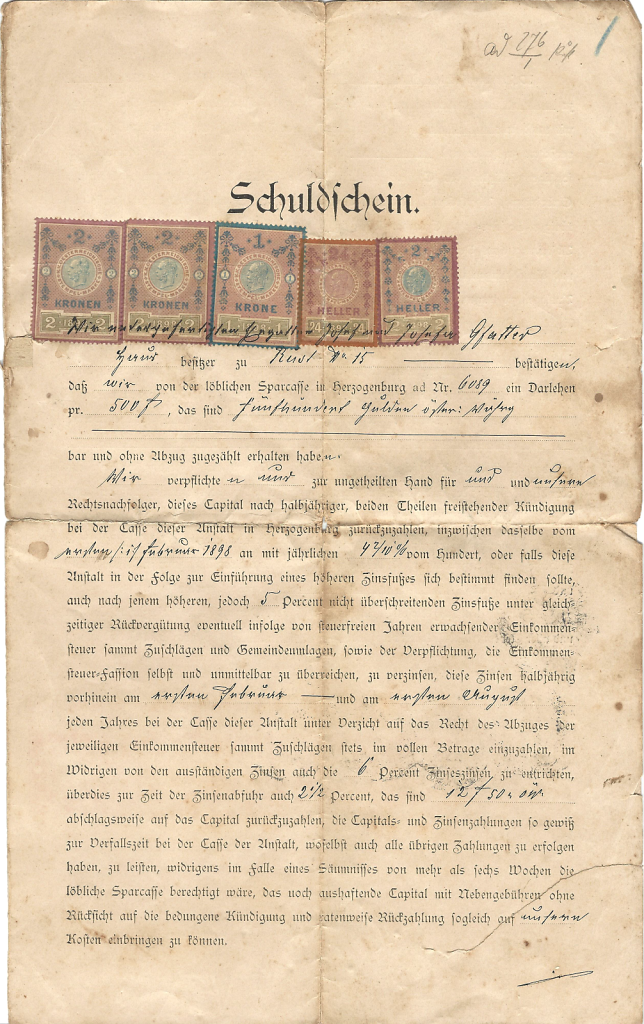 ad 276/1
Schuldschein.
2 2 1 2
KRONEN KRONEN KRONE HELLER HELLER
2 2 2 24
Wir unterzeichneten Josef und Josefa Gfatter
Haus besitzer zu Rust Nr. 15 bestätigen,
daß wir von der löblichen Sparcasse in Herzogenburg ad Nr. 6089 ein Darlehen
pr. 500 f, das sind fünfhundert Gulden öster: Währg
bar und ohne Abzug zugezählt erhalten haben.
Wir verpflichten und zur ungetheilten Hand für und und unsere
Rechtsnachfolger, dieses Capital nach halbjähriger, beiden Theilen freistehender Kündigung
bei der Casse dieser Anstalt in Herzogenburg zurückzuzahlen, inzwischen dasselbe vom
ersten Februar 1898 an mit jährlichen 4 2/10 % vom Hundert, oder falls diese
Anstalt in der Folge zur Einführung eines höheren Zinsfußes sich bestimmt finden sollte,
auch nach jenem höheren, jedoch 5 Percent nicht überschreitenden Zinsfuße unter gleich-
zeitiger Rückvergütung eventuell infolge von steuerfreien Jahren erwachsender Einkommen-
steuer sammt Zuschlägen und Gemeindeumlagen, sowie der Verpflichtung, die Einkommen-
steuer-Fassion selbst und unmittelbar zu überreichen, zu verzinsen, diese Zinsen halbjährig
vorhinein am ersten Februar und am ersten August
jeden Jahres bei der Casse dieser Anstalt unter Verzicht auf das Recht des Abzuges der
jeweiligen Einkommensteuer sammt Zuschlägen stets im vollen Betrage einzuzahlen, im
Widrigen von den ausständigen Zinsen auch die 6 Percent Zinseszinsen zu entrichten,
überdies zur Zeit der Zinsenabfuhr auch 2 1/2 Percent, das sind 12 f 50
abschlagsweise auf das Capital zurückzuzahlen, die Capitals- und Zinsenzahlungen so gewiß
zur Verfallszeit bei der Casse der Anstalt, woselbst auch alle übrigen Zahlungen zu erfolgen
haben, zu leisten, widrigens im Falle eines Säumnisses von mehr als sechs Wochen die
löbliche Sparcasse berechtigt wäre, das noch aushaftende Capital mit Nebengebühren ohne
Rücksicht auf die bedungene Kündigung und ratenweise Rückzahlung sogleich auf unsern
Kosten einbringen zu können.